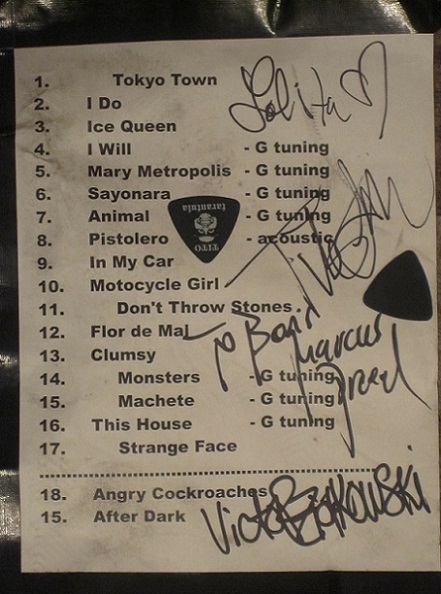 1. Tokyo Town
Lolita
2. I Do
3. Ice Queen
4. I Will - G tuning
5. Mary Metropolis - G tuning
6. Sayonara - G tuning
7. Animal - G tuning
TITO
tarantula
8. Pistolero - acoustic
9. In My Car
10. Motocycle Girl
11. Don't Throw Stones
12. Flor de Mal
Marcus
13. Clumsy
14. Monsters - G tuning
15. Machete - G tuning
16. This House - G tuning
17. Strange Face
18. Angry Cockroaches
15. After Dark